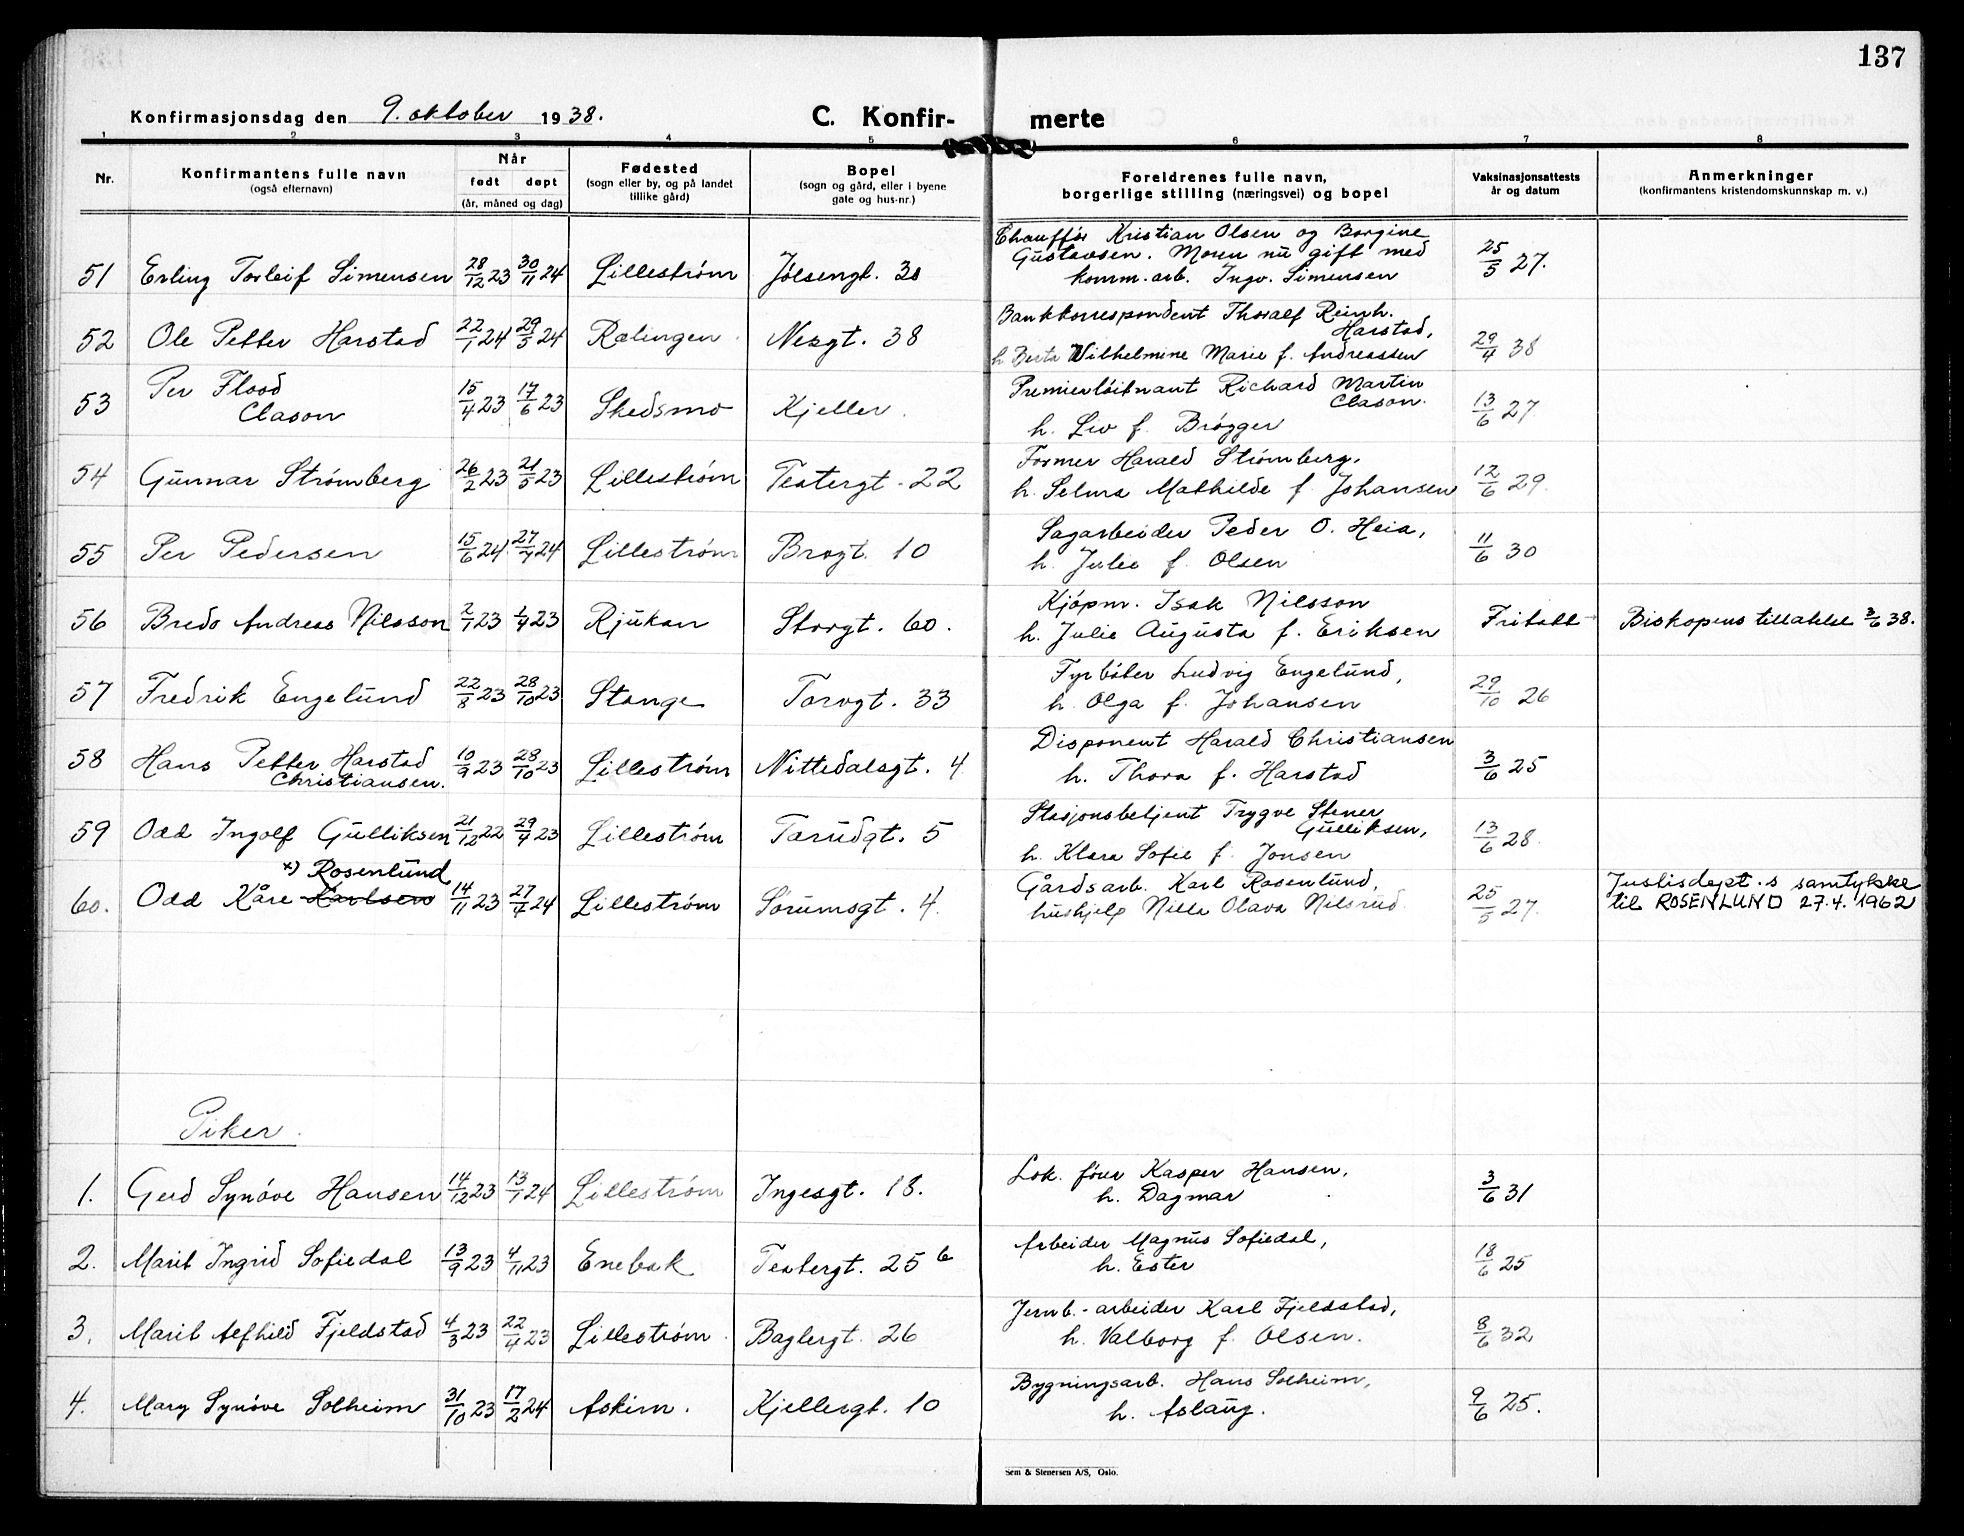 137
Konfirmasjonsdag den 9. oktober 1938.
C. Konfir- merte
1 2 3 4 5 6 7 8
Nr.
Konfirmantens fulle navn
(også efternavn)
Når
født døpt
(år, måned og dag)
Fødested
(sogn eller by, og på landet
tillike gård)
Bopel
(sogn og gård, eller i byene
gate og hus-nr.)
Foreldrenes fulle navn,
borgerlige stilling (næringsvei) og bopel
Vaksinasjonsattests
år og datum
Anmerkninger
(konfirmantens kristendomskunnskap m. v.)
Chauffør Kristian Olsen og Borgine
Gustavsen. Moren nu gift med
51 Erling Torleif Simensen 28/12 23 30/11 24 Lillestrøm Jølsengt. 30 komm. arb. Ingv. Simensen 25/5 27.
Bankkorrespondent Thoralf Reinh.
Harstad,
52 Ole Petter Harstad 22/1 24 29/5 24 Rælingen Nesgt. 38 h. Berta Wilhelmine Marie f. Andreassen 29/4 38
Per Flood Premierløitnant Richard Martin
Clason.
53 Clason 15/4 23 17/6 23 Skedsmo Kjeller. h. Liv f. Brøgger 13/6 27
Former Harald Strømberg,
54 Gunnar Strømberg 26/2 23 21/5 23 Lillestrøm Teatergt. 22 h. Selma Mathilde f. Johansen 12/6 29.
Sagarbeider Peder O. Heia,
55 Per Pedersen 15/6 24 27/7 24 Lillestrøm Brogt. 10 h. Julie f. Olsen 11/6 30
Kjøpm. Isak Nilsson
56 Bredo Andreas Nilsson 2/1 23 1/4 23 Rjukan Storgt. 60. h. Julie Augusta f. Eriksen Fritatt Biskopens tillatelse 3/6 38.
Fyrbøter Ludvig Engelund,
57 Fredrik Engelund 22/8 23 28/10 23 Stange Torvgt. 33 h. Olga f. Johansen 29/10 26
Disponent Harald Christiansen
58 Hans Petter Harstad 10/9 23 28/10 23 Lillestrøm Nittedalsgt. 4 h. Thora f. Harstad 3/6 25
Christiansen.
Stasjonsbetjent Trygve Stener
Gulliksen,
59 Odd Ingolf Gulliksen 21/12 22 29/4 23 Lillestrøm Tærudgt. 5 h. Klara Sofie f. Jonsen 13/6 28.
x) Rosenlund Gårdsarb. Karl Rosenlund, Justisdept.s samtykke
60. Odd Kåre Karlsen 14/11 23 27/4 24 Lillestrøm Sørumsgt. 4. hushjelp Nilla Olava Nilsrud. 25/5 27. til ROSENLUND 27.4. 1962
Piker.
Lok. fører Kasper Hansen,
1. Gerd Synøve Hansen 14/12 23 13/1 24 Lillestrøm Ingesgt. 18. h. Dagmar 3/6 31
Arbeider Magnus Sofiedal,
2. Marit Ingrid Sofiedal 13/9 23 4/11 23 Enebak Teatergt. 25 b h. Ester 18/6 25
Jernb.-arbeider Karl Fjeldstad,
3. Marit Alfhild Fjeldstad 4/3 23 22/4 23 Lillestrøm Baglergt. 26 h. Valborg f. Olsen. 8/6 32
Bygningsarb. Hans Solheim,
4. Mary Synøve Solheim 31/10 23 17/2 24 Askim. Kjellergt. 10 h. Aslaug. 9/6 25.
Sem & Stenersen A/S, Oslo.